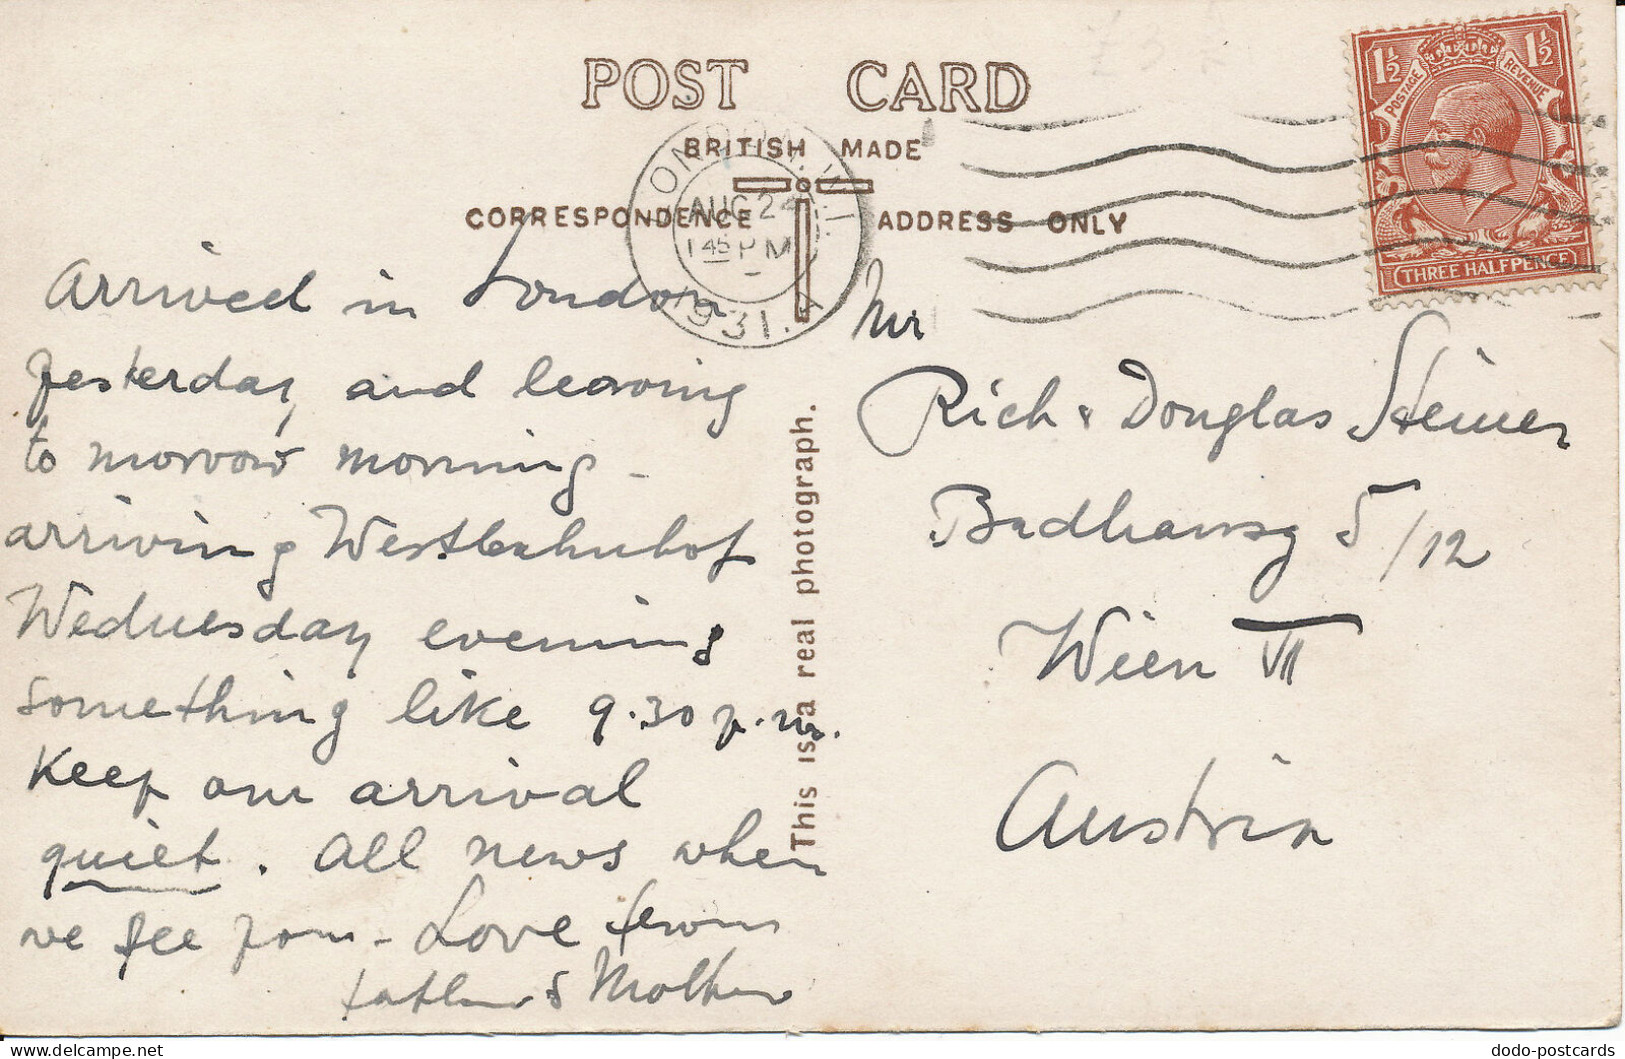 POST CARD
BRITISH MADE
CORRESPONDENCE ADDRESS ONLY
LONDON. W.1
AUG 24
1 45 PM
1931
1½ 1½
POSTAGE REVENUE
THREE HALFPENCE
Arrived in London
yesterday and leaving
to morrow morning -
arriving Westbahnhof
Wednesday evening
something like 9.30 p.m.
Keep our arrival
quiet. All news when
we see you - Love from
Father & Mother
This is a real photograph.
Mr
Rich & Douglas Steiner
Badhausg 5/12
Wien VII
Austria
dodo-postcards